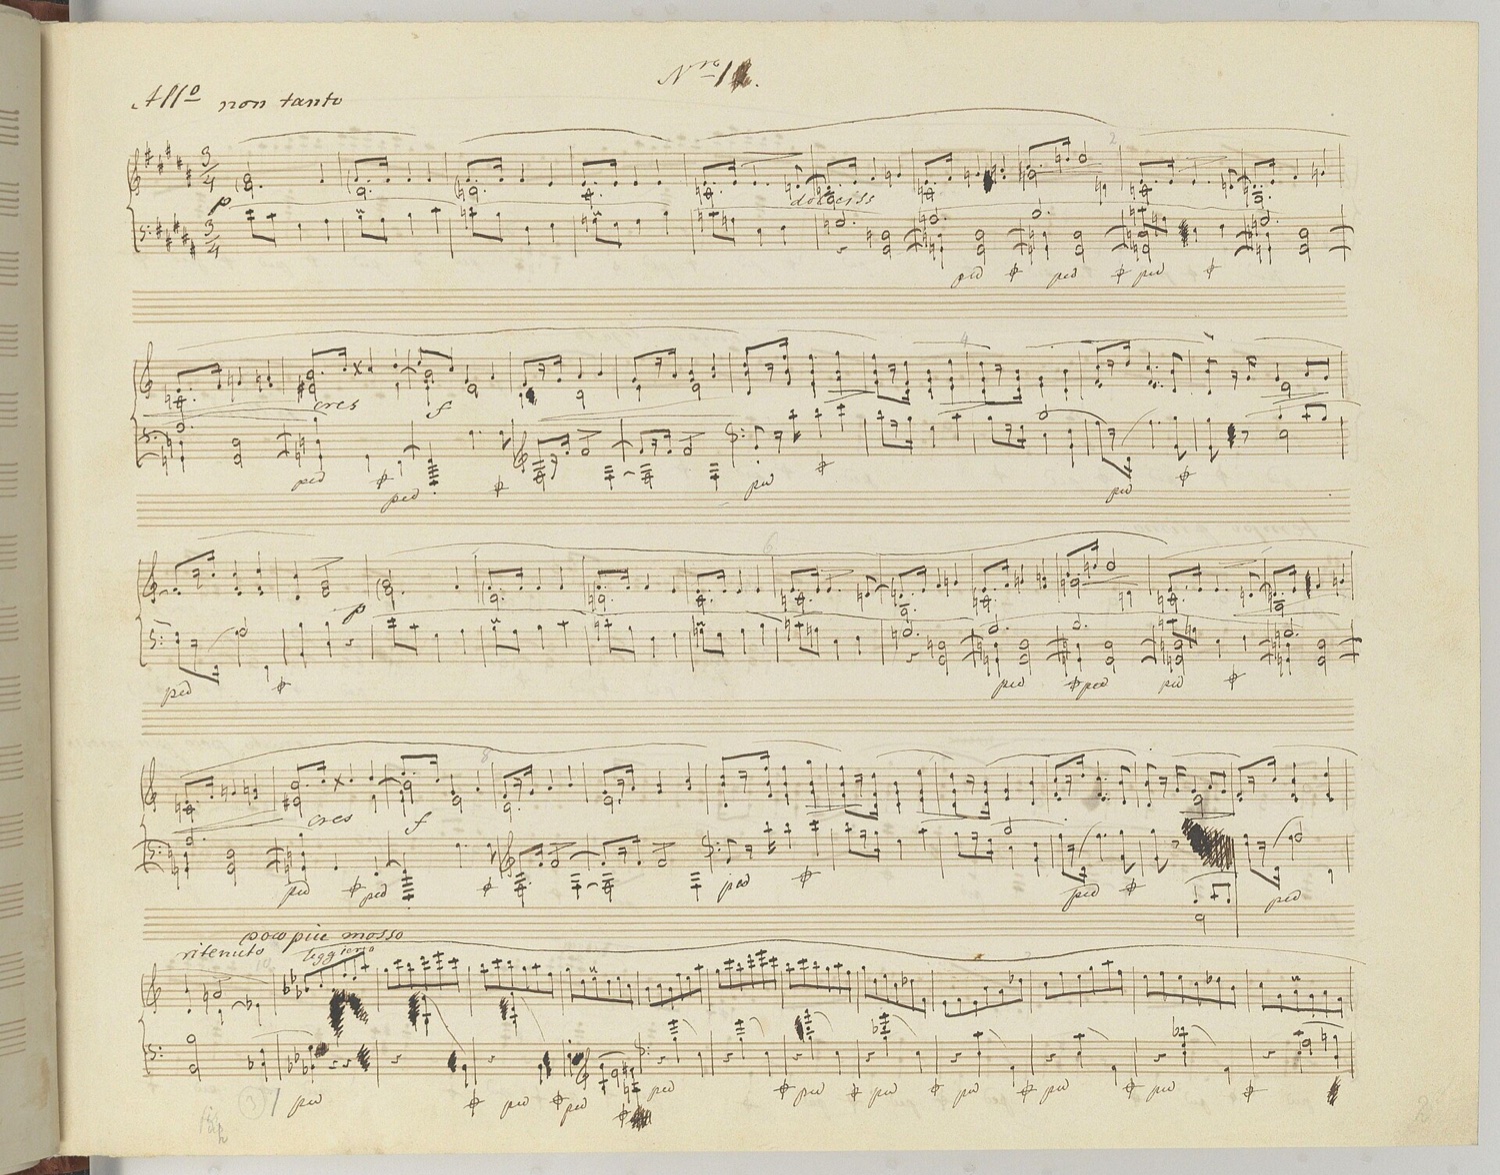 Nro 1
Allo non tanto
3 4
p
dolciss
3 4
ped ped ped
2
4
cres f
ped ped ped ped
6
p
ped ped ped ped
8
cres f
ped ped ped ped ped
poco piu mosso
ritenuto leggiero
10
ped ped ped ped ped ped ped ped
1
2